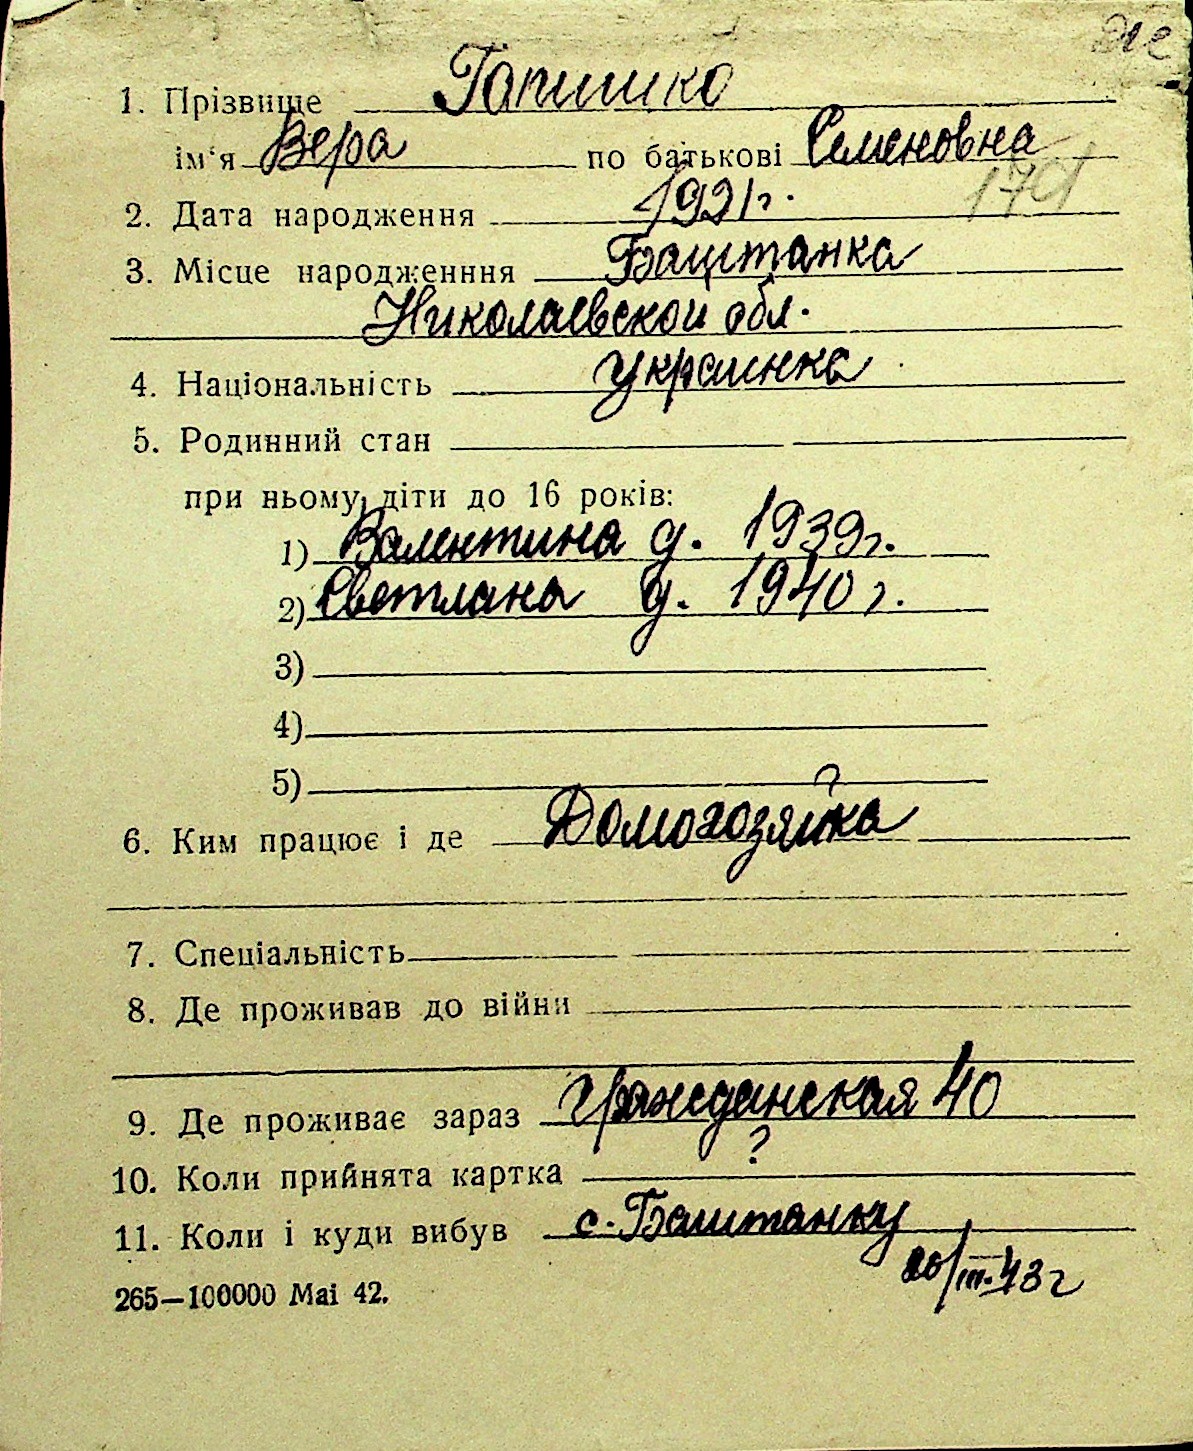 1. Прізвище Гапишко
ім'я Вера по батькові Семеновна
2. Дата народження 1921 г.
179
3. Місце народженння Баштанка
Николаевской обл.
4. Національність украинка
5. Родинний стан
при ньому діти до 16 років:
1) Валентина д. 1939 г.
2) Светлана д. 1940 г.
3)
4)
5)
6. Ким працює і де Домохозяйка
7. Спеціальність
8. Де проживав до війни
9. Де проживає зараз Гражданская 40
10. Коли прийнята картка ?
11. Коли і куди вибув с. Баштанку
20/III-43 г
265—100000 Mai 42.